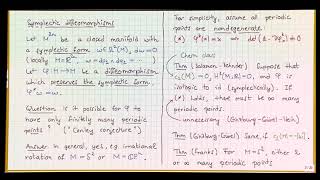 Symplectic diffeomorphisms
Let M²ⁿ be a closed manifold with
a symplectic form ω ∈ Ω²(M), dω = 0
(locally M = ℝ²ⁿ,
Let φ: M → M be a diffeomorphism
which preserves the symplectic form,
φ*ω = ω.
Question: is it possible for φ to
have only finitely many periodic
points? ("Conley conjecture")
Answer: In general, yes, eg. irrational
rotation of M = S² or M = ℂPⁿ.
For simplicity, assume all periodic
points are nondegenerate:
(*) φᵏ(x) = x ⇒ det(1 - Dφᵏₓ) ≠ 0
Chern class
Thm (Salamon-Zehnder) Suppose that
c₁(M) = 0, and φ is
isotopic to id (symplectically). If
(*) holds, there must be many
periodic points.
unnecessary (Ginzburg-Gürel-Hein)
Thm (Ginzburg-Gürel) Same, if
Thm (Franks) For M = S², either 2
or ∞ many periodic points